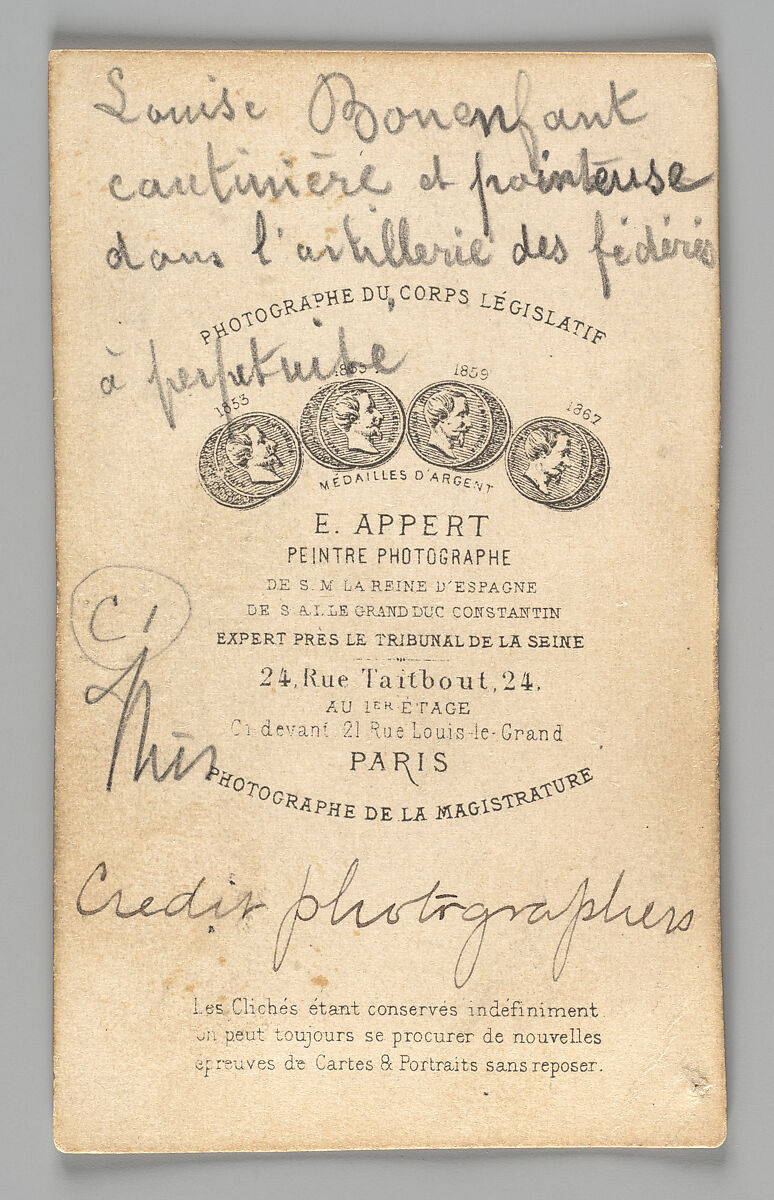 Louise Bonenfant
cantinière et pointeuse
dans l'artillerie des fédérés
PHOTOGRAPHE DU CORPS LÉGISLATIF
à perpetuite
1853 1855 1859 1867
MÉDAILLES D'ARGENT
E. APPERT
PEINTRE PHOTOGRAPHE
DE S. M LA REINE D'ESPAGNE
DE S A.I. LE GRAND DUC CONSTANTIN
EXPERT PRÈS LE TRIBUNAL DE LA SEINE
C 1
24, Rue Taitbout, 24.
AU 1ER ÉTAGE
Ci devant 21 Rue Louis-le-Grand
PARIS
PHOTOGRAPHE DE LA MAGISTRATURE
Credit photographers
Les Clichés étant conservés indéfiniment
on peut toujours se procurer de nouvelles
épreuves de Cartes & Portraits sans reposer.